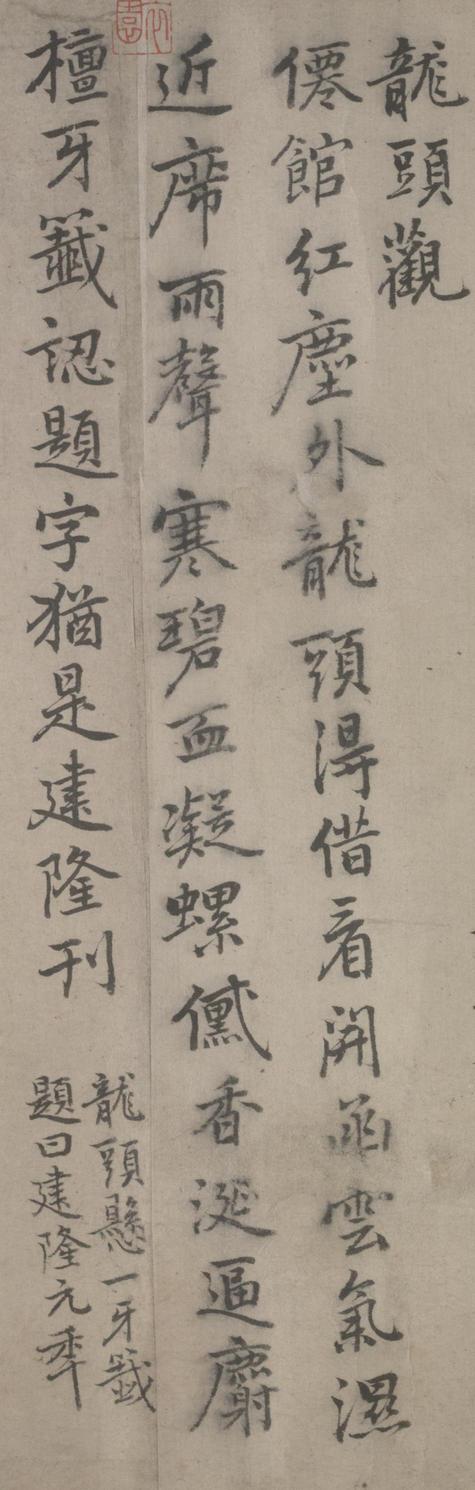 龍頭觀
僊館紅塵外龍頭得借看開函雲氣濕
近席雨聲寒碧血凝螺黛香涎逼麝
檀牙籤認題字猶是建隆刊
龍頭懸一牙籤
題曰建隆元秊